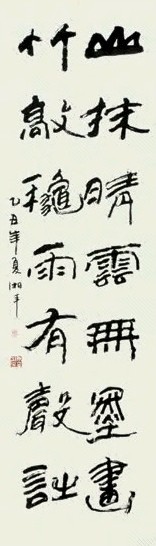 山抹晴雲無墨畫
竹敲穐雨有聲詩
乙丑年夏湘平